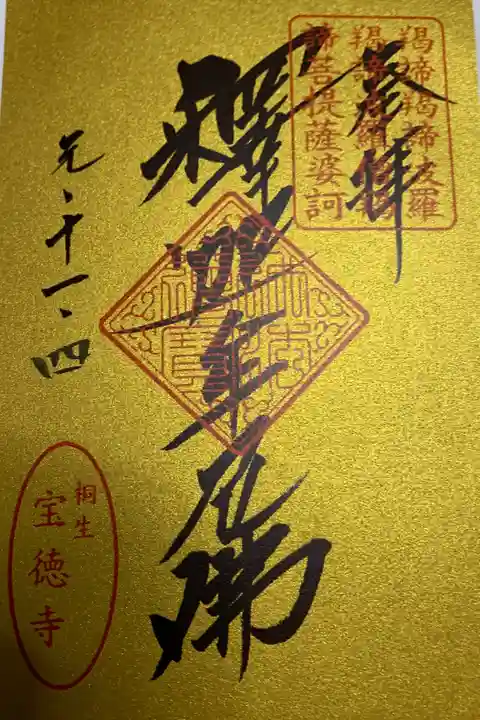 羯諦羯諦波羅
羯諦波羅僧羯
諦菩提薩婆訶
奉拝
釋迦牟尼佛
元、十一、四
桐生
宝徳寺